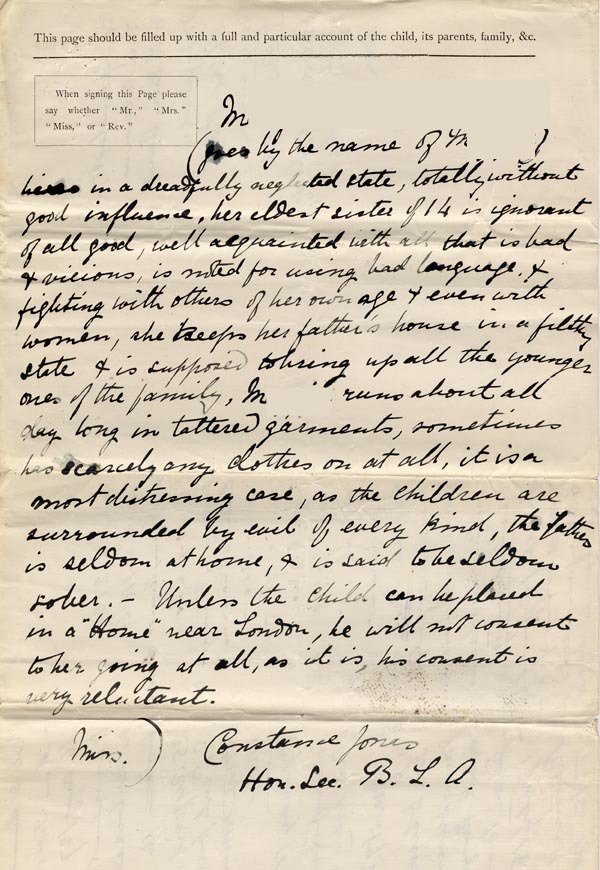 This page should be filled up with a full and particular account of the child, its parents, family, &c.
When signing this Page please
say whether "Mr.," "Mrs."
"Miss," or "Rev."
M
(goes by the name of M )
lives in a dreadfully neglected state, totally without
good influence, her eldest sister of 14 is ignorant
of all good, well acquainted with all that is bad
& vicious, is noted for using bad language, &
fighting with others of her own age & even with
women, she keeps her father's house in a filthy
state & is supposed to bring up all the younger
ones of the family, M runs about all
day long in tattered garments, sometimes
has scarcely any clothes on at all, it is a
most distressing case, as the children are
surrounded by evil of every kind, the father
is seldom at home, & is said to be seldom
sober. – Unless the child can be placed
in a "Home" near London, he will not consent
to her going at all, as it is, his consent is
very reluctant.
Miss.) Constance Jones
Hon. Sec. B. L. A.